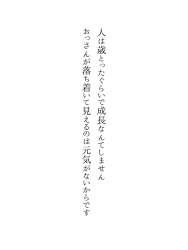 人は歳とったぐらいで成長なんてしません
おっさんが落ち着いて見えるのは元気がないからです